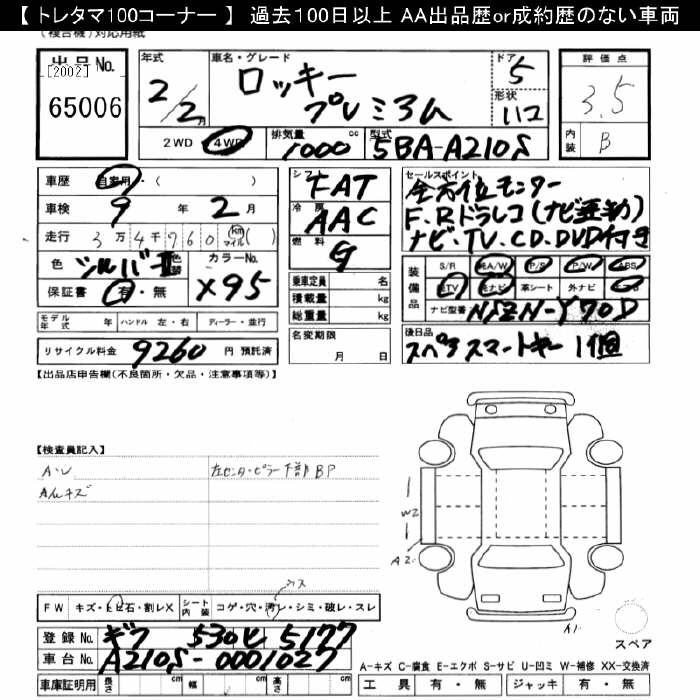 【 トレタマ100コーナー 】 過去100日以上 AA出品歴or成約歴のない車両
(複合機)対応用紙
出品 No.
[2002]
65006
年式
2/2月
車名・グレード
ロッキー
プレミアム
ドア
5
形状
ハコ
評価点
3.5
内装
B
2WD 4WD
排気量 cc
1000
型式
5BA-A210S
車歴 自家用・( )
車検 9年 2月
走行 3万4千960 km マイル( )
色 シルバーII 色替
カラーNo.
X95
保証書 有・無
シフト
FAT
冷房
AAC
燃料
G
乗車定員 名
積載量 kg
総重量 kg
セールスポイント
全方位モニター
F.Rドラレコ(ナビ連動)
ナビ・TV.CD.DVD付き
装備品
S/R 純A/W P/S P/W ABS
純TV 純ナビ 革シート 外ナビ エアB
ナビ型番 NSZN-Y70D
モデル年式 年 ハンドル 左・右 ディーラー・並行
リサイクル料金 9260 円 預託済
名変期限
月 日
後日品
スペア スマートキー 1個
【出品店申告欄(不良箇所・欠品・注意事項等)】
【検査員記入】
A・U 左センターピラー下部BP
AWキズ
W2
A2
A1
スペア
ウス
FW キズ・ヒビ石・割レX シート内装 コゲ・穴・汚レ・シミ・破レ・スレ
登録 No. ギフ 530 ヒ 5177
車台 No. A210S-0001027
A-キズ C-腐食 E-エクボ S-サビ U-凹ミ W-補修 XX-交換済
車庫証明用 長さ cm 幅 cm 高さ cm
工具 有・無 ジャッキ 有・無